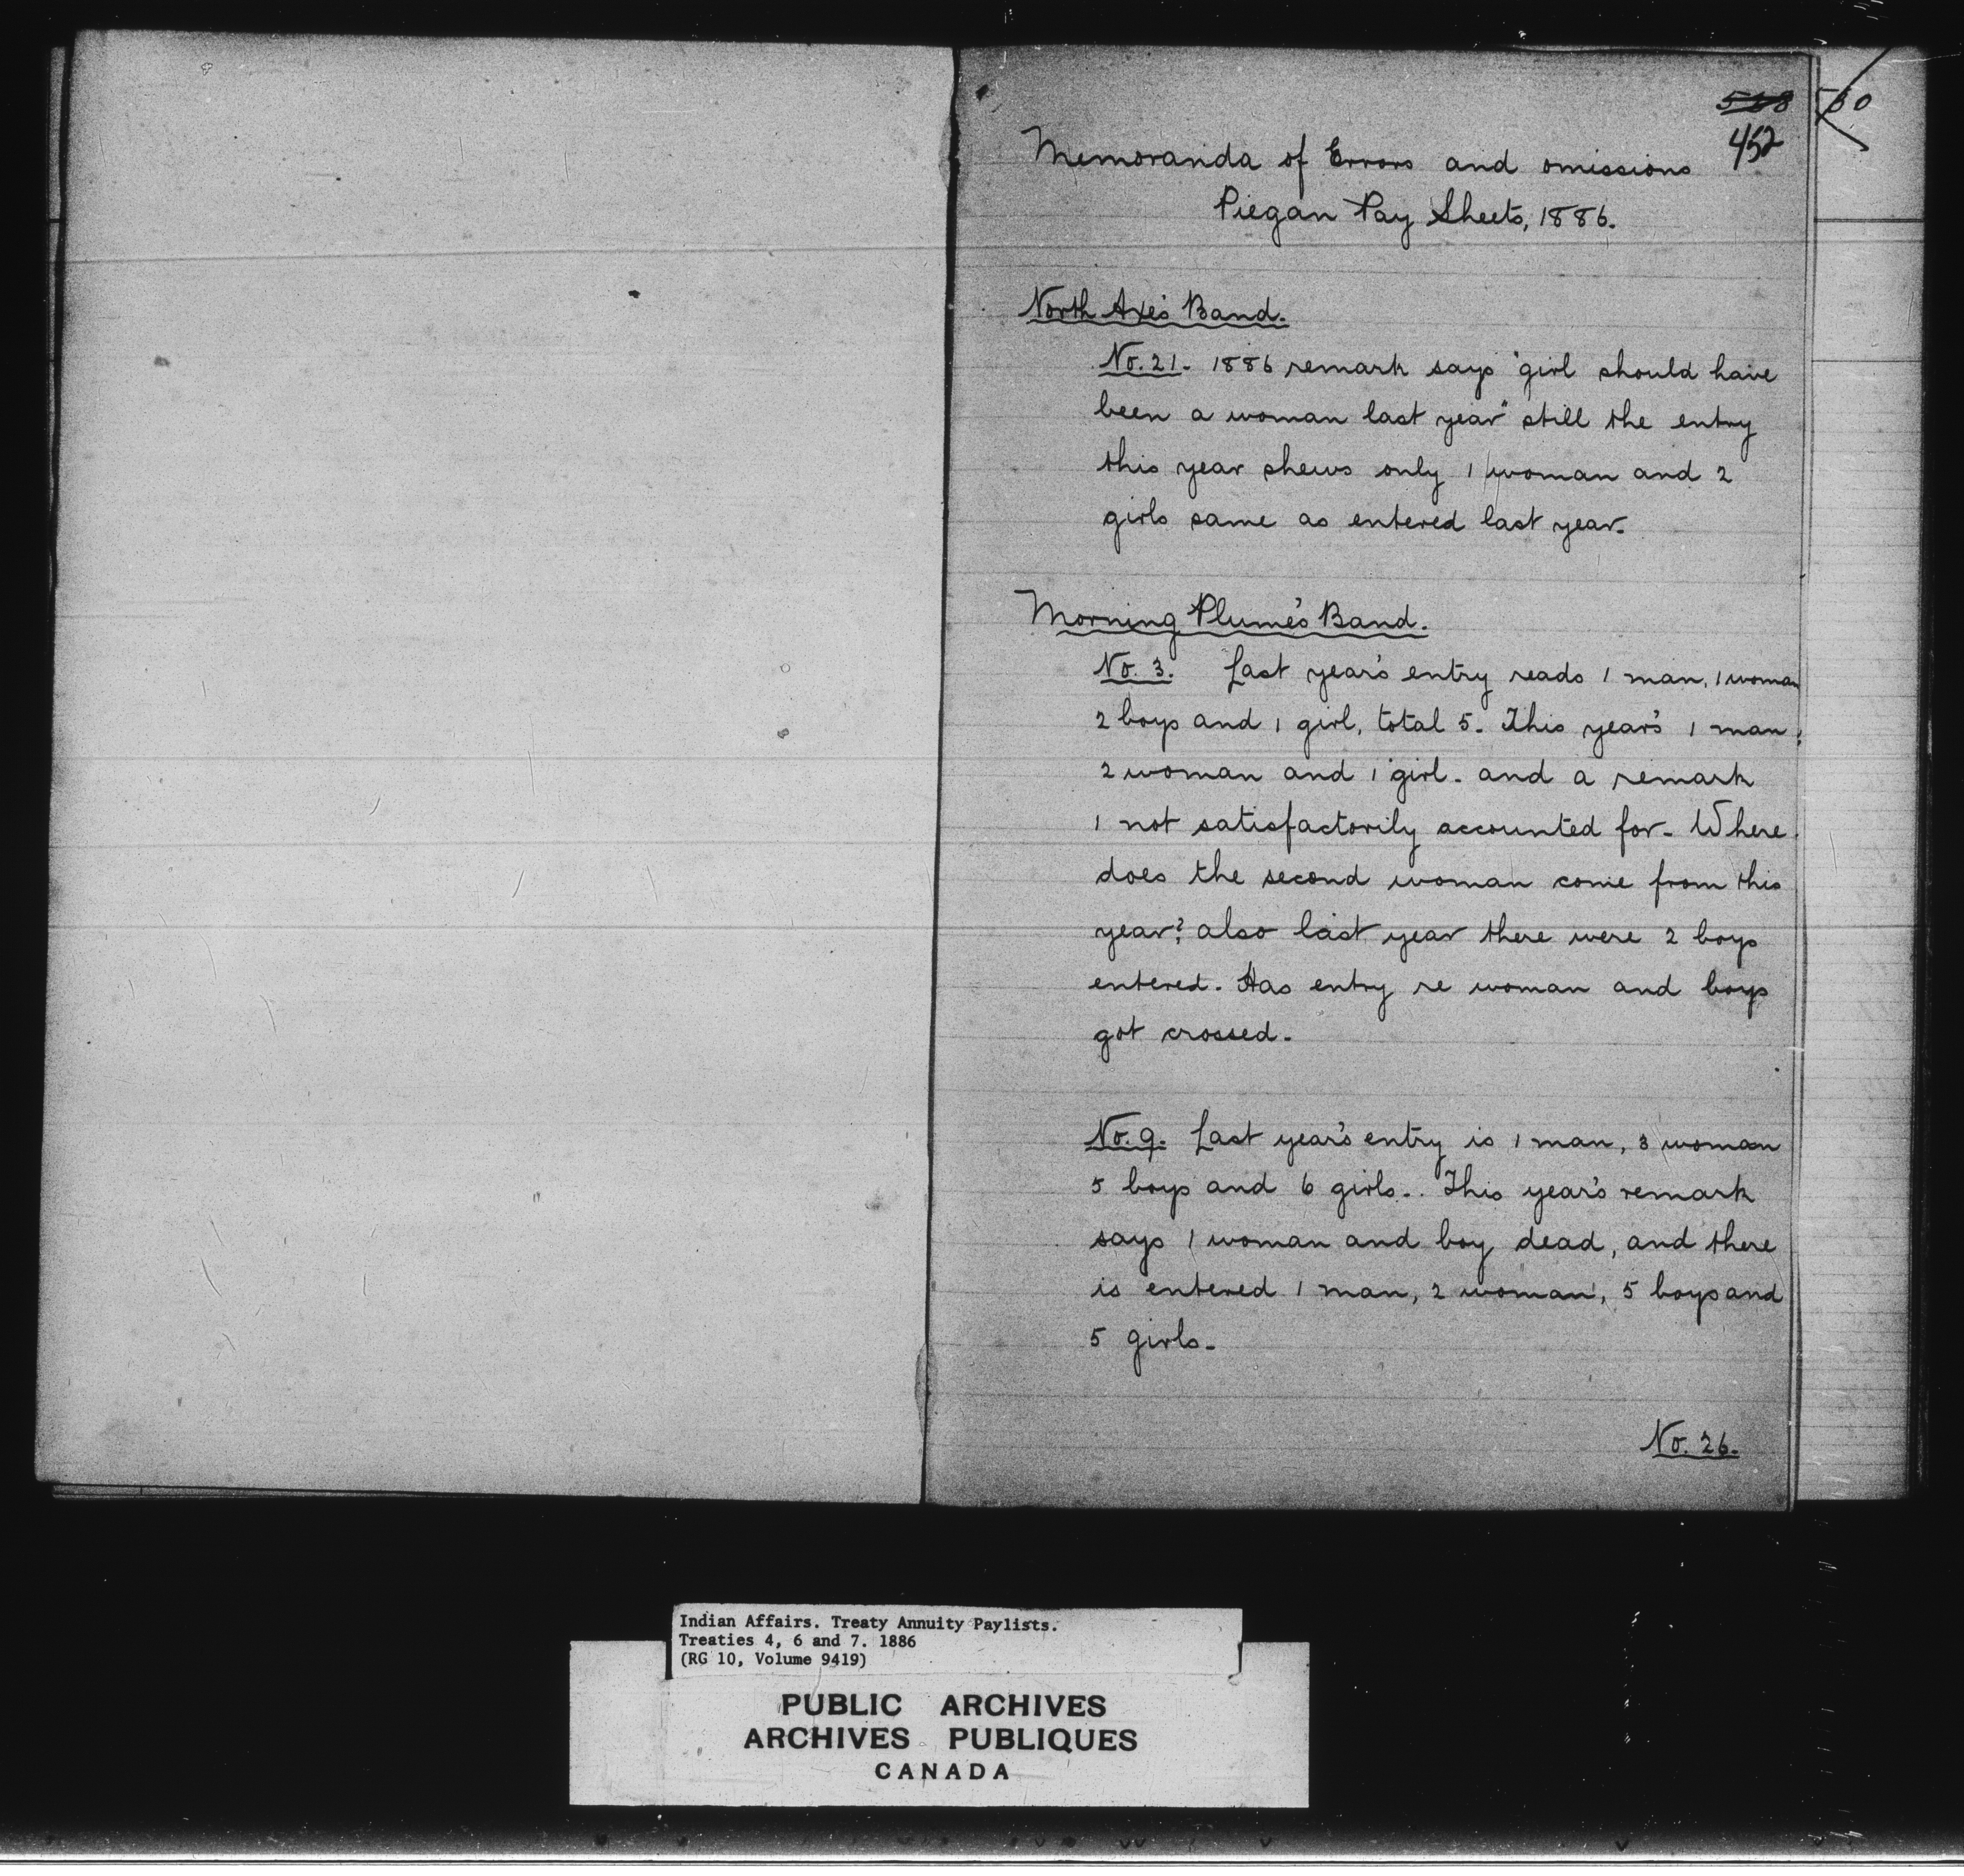 530
452
Memoranda of Errors and omissions
Piegan Pay Sheets, 1886.
North Axe's Band.
No. 21. 1886 remark says "girl should have
been a woman last year" still the entry
this year shews only 1 woman and 2
girls same as entered last year.
Morning Plume's Band.
No. 3. Last year's entry reads 1 man, 1 woman
2 boys and 1 girl, total 5. This year's 1 man,
2 woman and 1 girl. and a remark
1 not satisfactorily accounted for. Where
does the second woman come from this
year? also last year there were 2 boys
entered. Has entry re woman and boys
got crossed.
No. 9. Last year's entry is 1 man, 3 woman
5 boys and 6 girls. This year's remark
says 1 woman and boy dead, and there
is entered 1 man, 2 woman, 5 boys and
5 girls.
No. 26.
Indian Affairs. Treaty Annuity Paylists.
Treaties 4, 6 and 7. 1886
(RG 10, Volume 9419)
PUBLIC ARCHIVES
ARCHIVES PUBLIQUES
CANADA